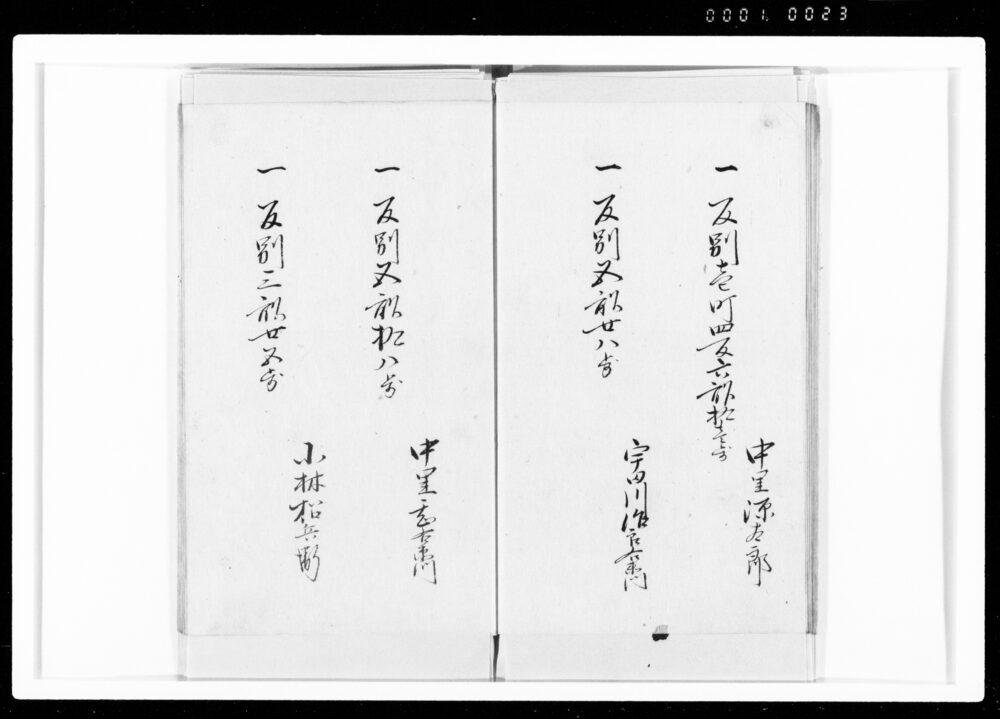 0001 0023
一 反別壱町四反六畝拾壱歩
中里源太郎
一 反別五畝廿八歩
宇田川治右衛門
一 反別五畝拾八歩
中里 右衛門
一 反別三畝廿五歩
小林松兵衛